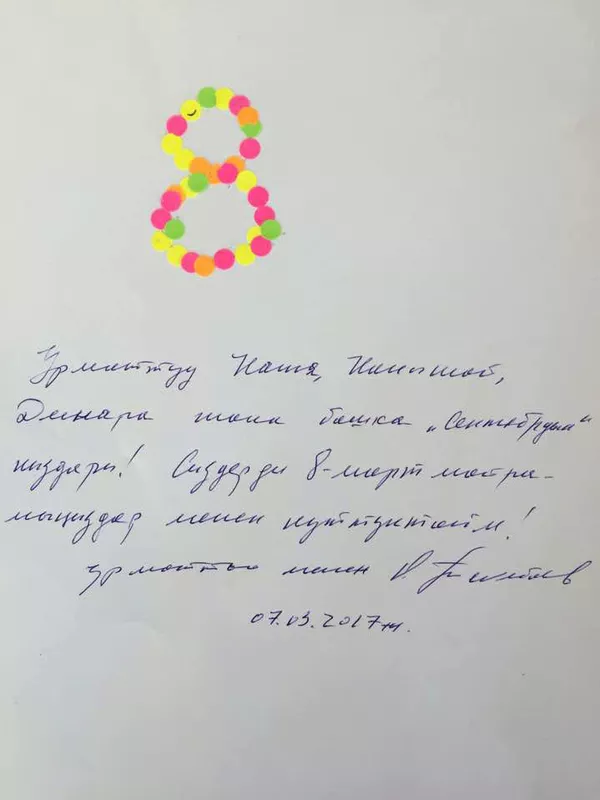 Урматтуу Настя, Канышай,
Динара жана башка „Сентябрдын“
кыздары! Сиздерди 8-март майра-
мыңыздар менен куттуктайм!
урматтоо менен
07.03.2017ж.